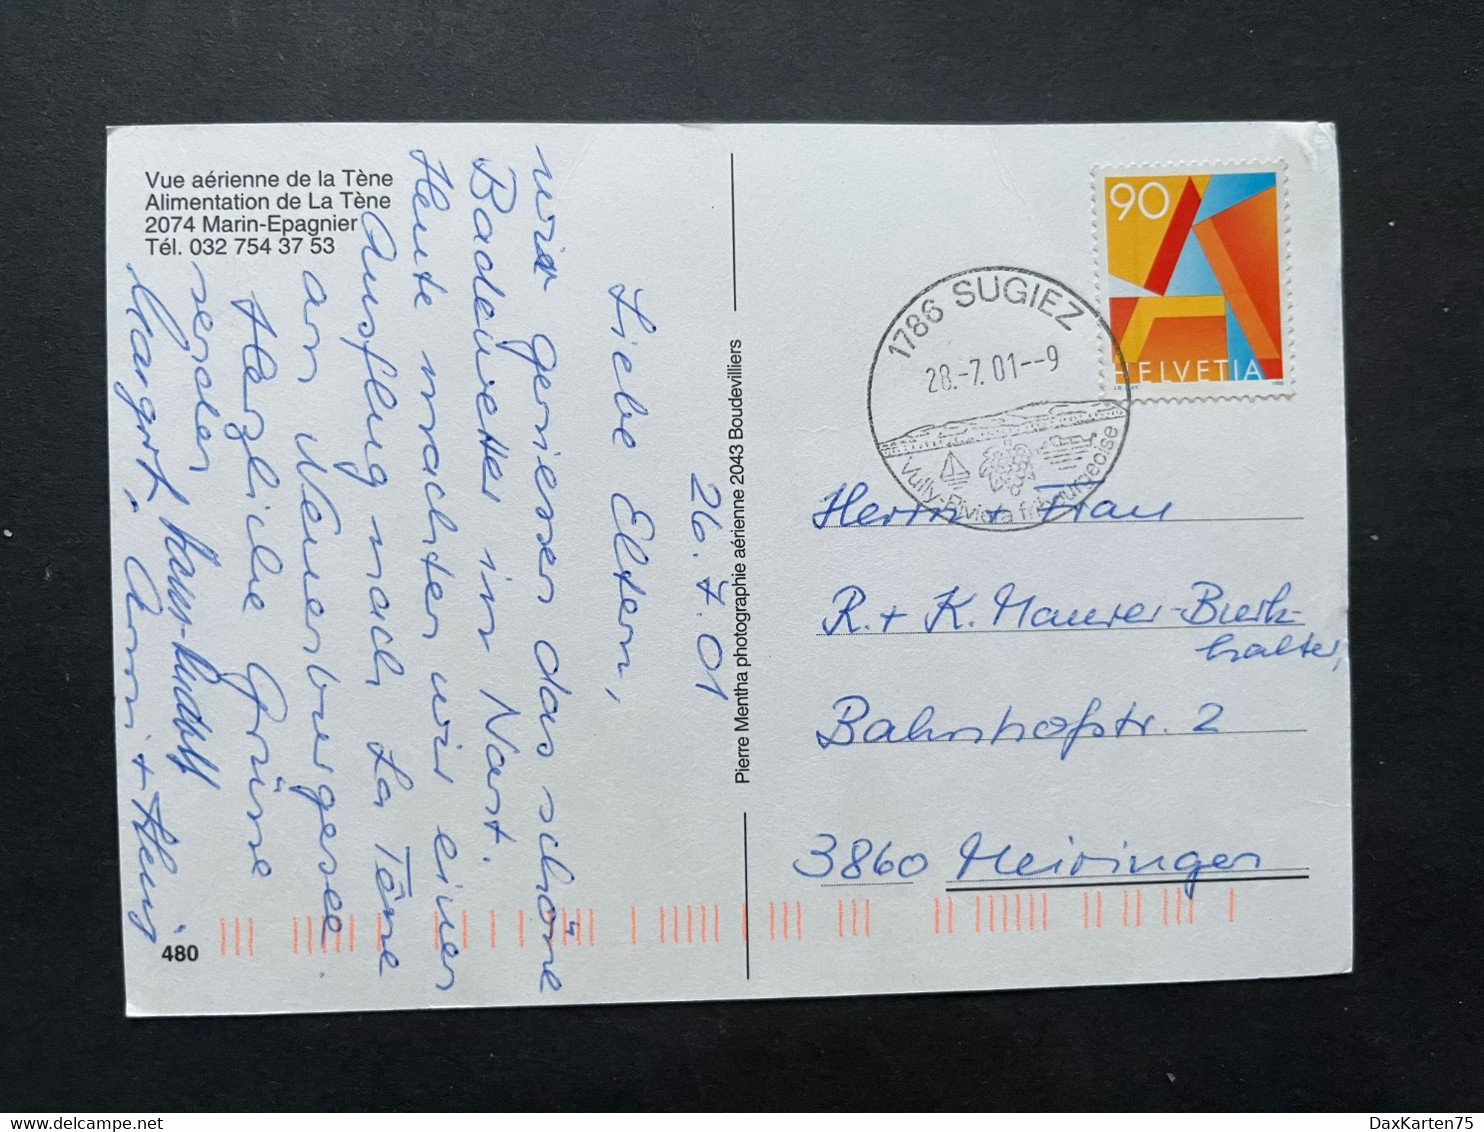 Vue aérienne de la Tène
Alimentation de La Tène
2074 Marin-Epagnier
Tél. 032 754 37 53
26.7.01
Liebe Eltern,
wir geniessen das schöne
Badewetter in Nant.
Heute machten wir einen
Ausflug nach La Tène
am Neuenburgersee.
Herzliche Grüsse
senden
Margrit, Hans-Rudolf
Anni + Heinz
480
Pierre Mentha photographie aérienne 2043 Boudevilliers
90
HELVETIA
1786 SUGIEZ
28.-7.01--9
Vully-Riviera fribourgeoise
Herrn + Frau
R. + K. Maurer-Burk-
halter,
Bahnhofstr. 2
3860 Meiringen
DaxKarten75